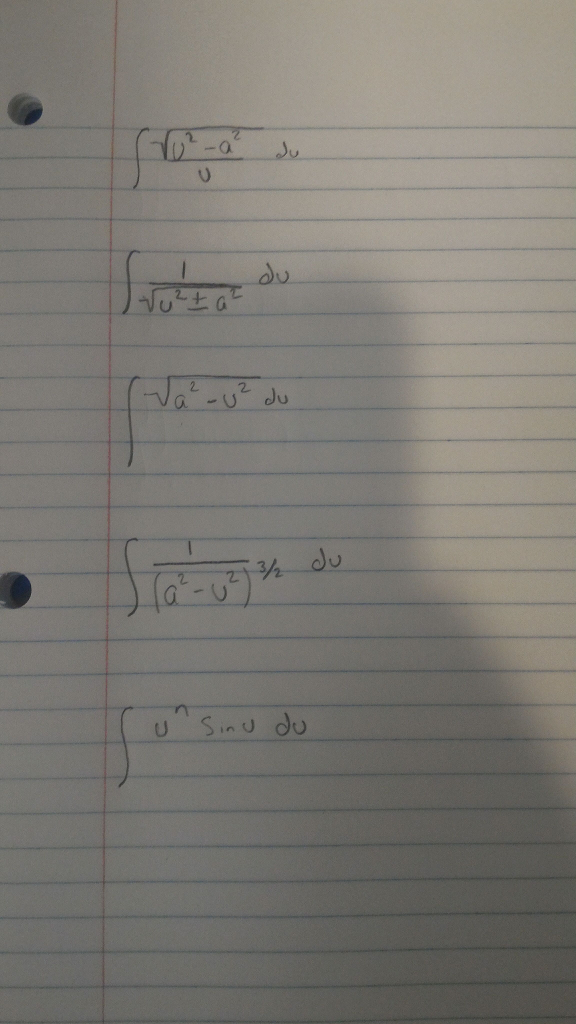 ∫ √(u² - a²) / u du
∫ 1 / √(u² ± a²) du
∫ √(a² - u²) du
∫ 1 / (a² - u²)^3/2 du
∫ uⁿ sin u du